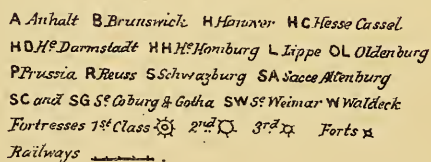 A Anhalt B Brunswick H Hanover HC Hesse Cassel
HD Hᵉ Darmstadt HH Hᵉ Homburg L Lippe OL Oldenburg
P Prussia R Reuss S Schwazburg SA Sacce Altenburg
SC and SG Sᵉ Coburg & Gotha SW Sᵉ Weimar W Waldeck
Fortresses 1st Class 2nd 3rd Forts
Railways